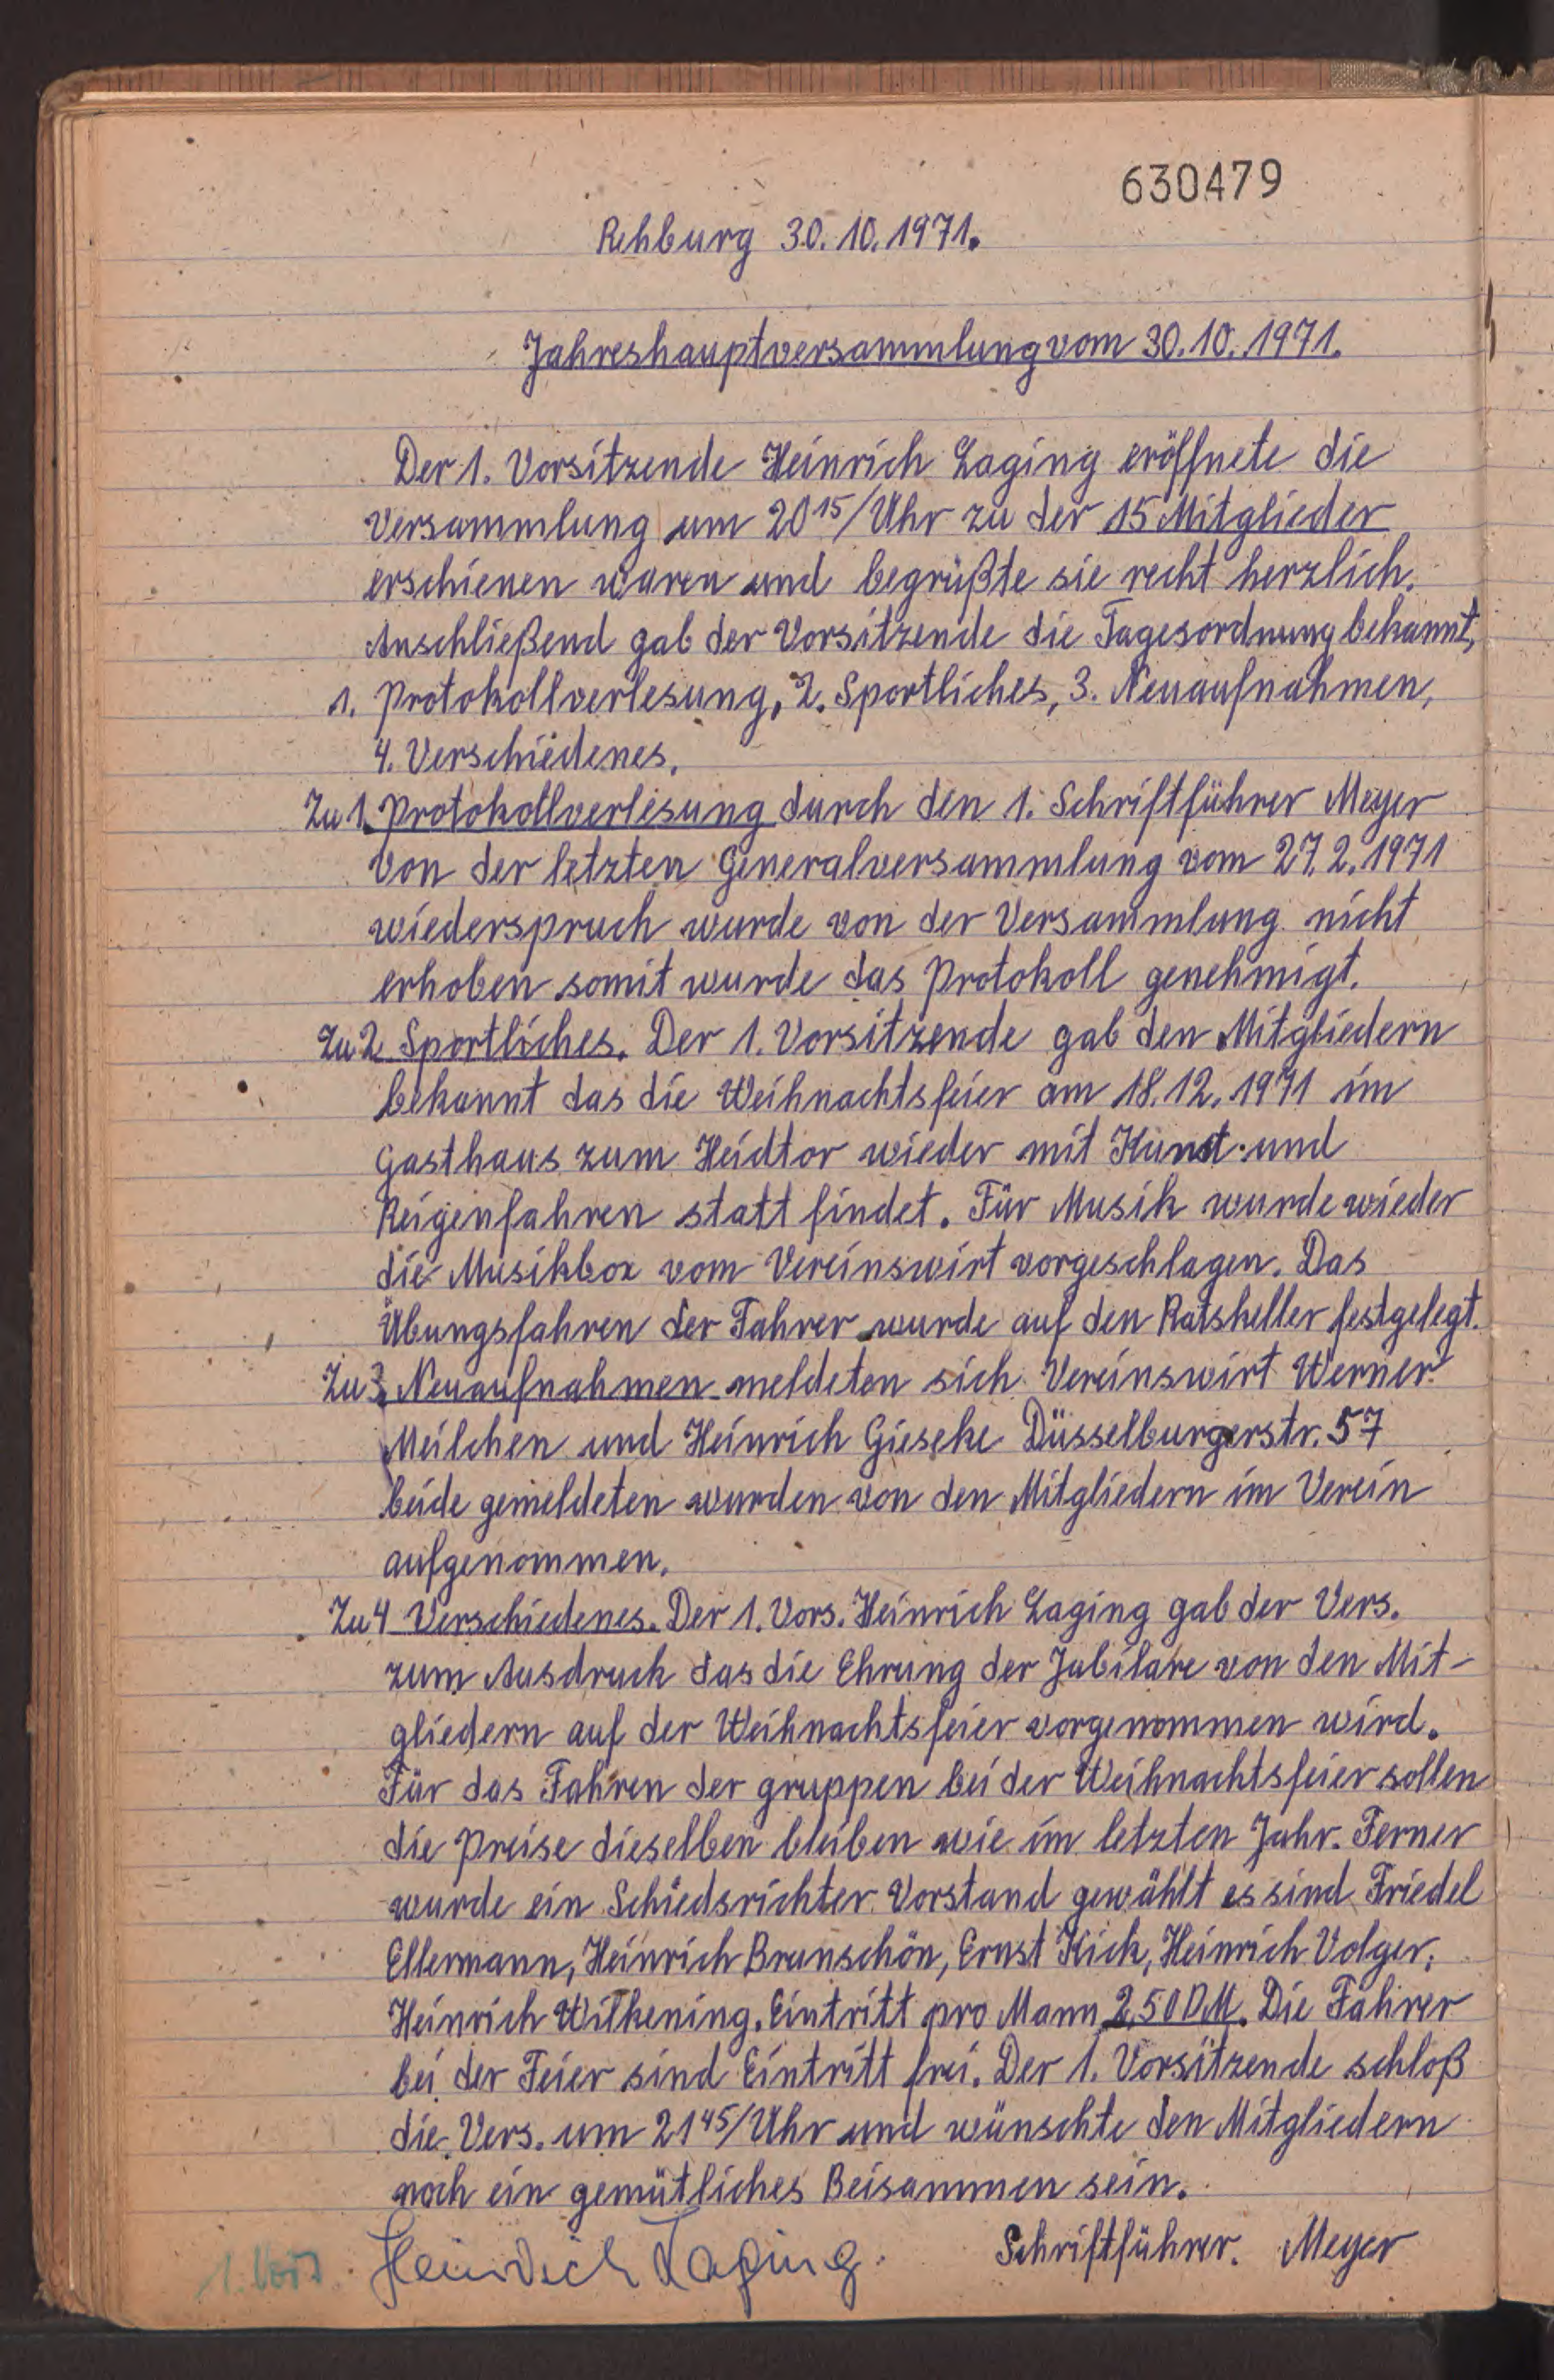 630479
Rehburg 30.10.1971.
Jahreshauptversammlung vom 30.10.1971.
Der 1. Vorsitzende Heinrich Laging eröffnete die
Versammlung um 20¹⁵/Uhr zu der 15 Mitglieder
erschienen waren und begrüßte sie recht herzlich.
Anschließend gab der Vorsitzende die Tagesordnung bekannt,
1. Protokollverlesung, 2. Sportliches, 3. Neuaufnahmen,
4. Verschiedenes.
Zu 1. Protokollverlesung durch den 1. Schriftführer Meyer
von der letzten Generalversammlung vom 27.2.1971
wiederspruch wurde von der Versammlung nicht
erhoben somit wurde das Protokoll genehmigt.
Zu 2 Sportliches. Der 1. Vorsitzende gab den Mitgliedern
bekannt das die Weihnachtsfeier am 18.12.1971 im
Gasthaus zum Heidtor wieder mit Kunst und
Reigenfahren statt findet. Für Musik wurde wieder
die Musikbox vom Vereinswirt vorgeschlagen. Das
Übungsfahren der Fahrer wurde auf den Ratskeller festgelegt.
Zu 3. Neuaufnahmen meldeten sich Vereinswirt Werner
Meilchen und Heinrich Gieseke Düsselburgerstr. 57
beide gemeldeten wurden von den Mitgliedern im Verein
aufgenommen.
Zu 4 Verschiedenes. Der 1. Vors. Heinrich Laging gab der Vers.
zum Ausdruck das die Ehrung der Jubilare von den Mit-
gliedern auf der Weihnachtsfeier vorgenommen wird.
Für das Fahren der gruppen bei der Weihnachtsfeier sollen
die Preise dieselben bleiben wie im letzten Jahr. Ferner
wurde ein Schiedsrichter Vorstand gewählt es sind Friedel
Ellermann, Heinrich Brunschön, Ernst Kick, Heinrich Volger,
Heinrich Wilkening. Eintritt pro Mann 2,50 DM. Die Fahrer
bei der Feier sind Eintritt frei. Der 1. Vorsitzende schloß
die Vers. um 21⁴⁵/Uhr und wünschte den Mitgliedern
noch ein gemütliches Beisammen sein.
1. Vors. Heinrich Laging. Schriftführer. Meyer